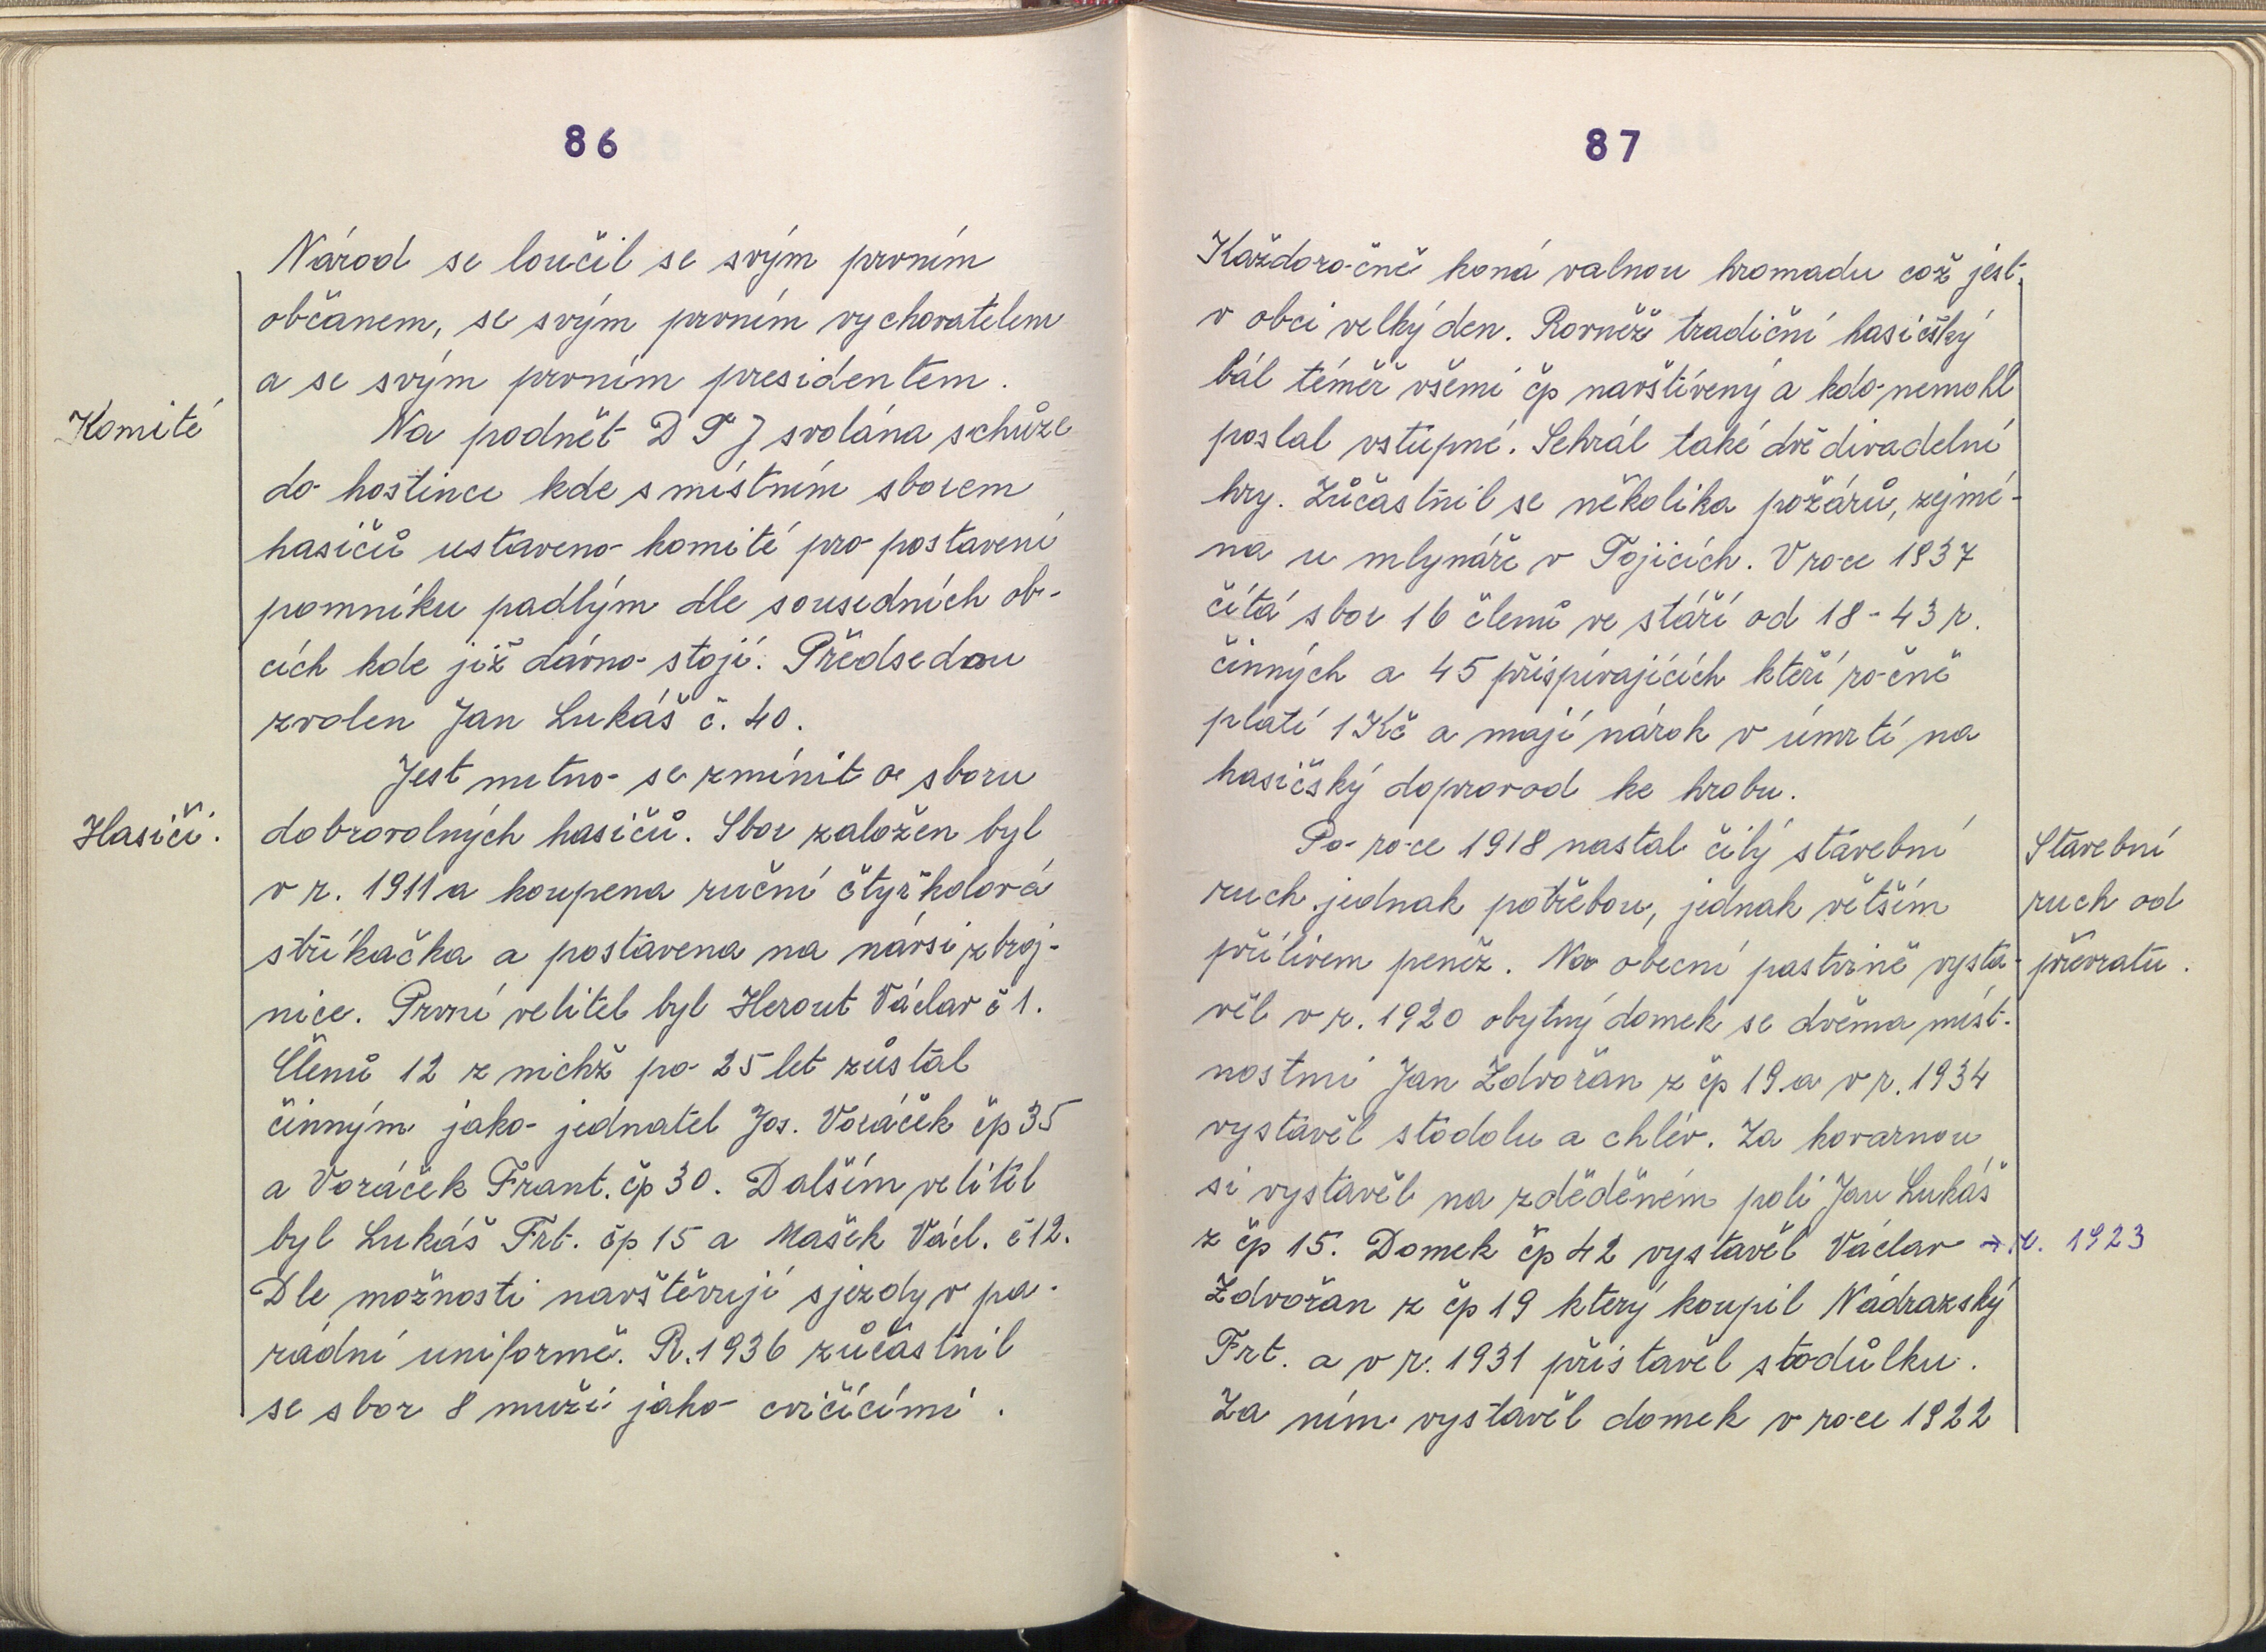 86
Národ se loučil se svým prvním
občanem, se svým prvním vychovatelem
a se svým prvním presidentem.
Komité
Na podnět D T J svolána schůze
do hostince kde s místním sborem
hasičů ustaveno komité pro postavení
pomníku padlým dle sousedních ob-
cích kde již dávno stojí. Předsedou
zvolen Jan Lukáš č. 40.
Jest nutno se zmínit o sboru
Hasiči.
dobrovolných hasičů. Sbor založen byl
v r. 1911 a koupena ruční čtyřkolová
stříkačka a postavena na návsi zbroj-
nice. První velitel byl Herout Václav č 1.
Členů 12 z nichž po 25 let zůstal
činným jako jednatel Jos. Voráček čp 35
a Voráček Frant. čp 30. Dalším velitel
byl Lukáš Frt. čp 15 a Mašek Václ. č 12.
Dle možnosti navštěvují sjezdy v pa-
rádní uniformě. R. 1936 zůčastnil
se sbor 8 muži jako cvičícími.
87
Každoročně koná valnou hromadu což jest
v obci velký den. Rovněž tradiční hasičský
bál téměř všemi čp navštívený a kdo nemohl
poslal vstupné. Sehrál také dvě divadelní
hry. Zůčastnil se několika požárů, zejmé-
na u mlynáře v Tojicích. V roce 1837
čítá sbor 16 členů ve stáří od 18 - 43 r.
činných a 45 přispívajících kteří ročně
platí 1 Kč a mají nárok v úmrtí na
hasičský doprovod ke hrobu.
Po roce 1918 nastal čilý stavební
ruch jednak potřebou, jednak větším
přílivem peněz. Na obecní pastvině vysta-
věl v r. 1920 obytný domek se dvěma míst-
nostmi Jan Zdvořan z čp 19 a v r. 1934
vystavěl stodolu a chlév. Za kovarnou
si vystavěl na zděděném poli Jan Lukáš
z čp 15. Domek čp 42 vystavěl Václav → r. 1923
Zdvořan z čp 19 který koupil Nádrazský
Frt. a v r. 1931 přistavěl stodůlku.
Za ním vystavěl domek v roce 1922
Stavební
ruch od
převratu.